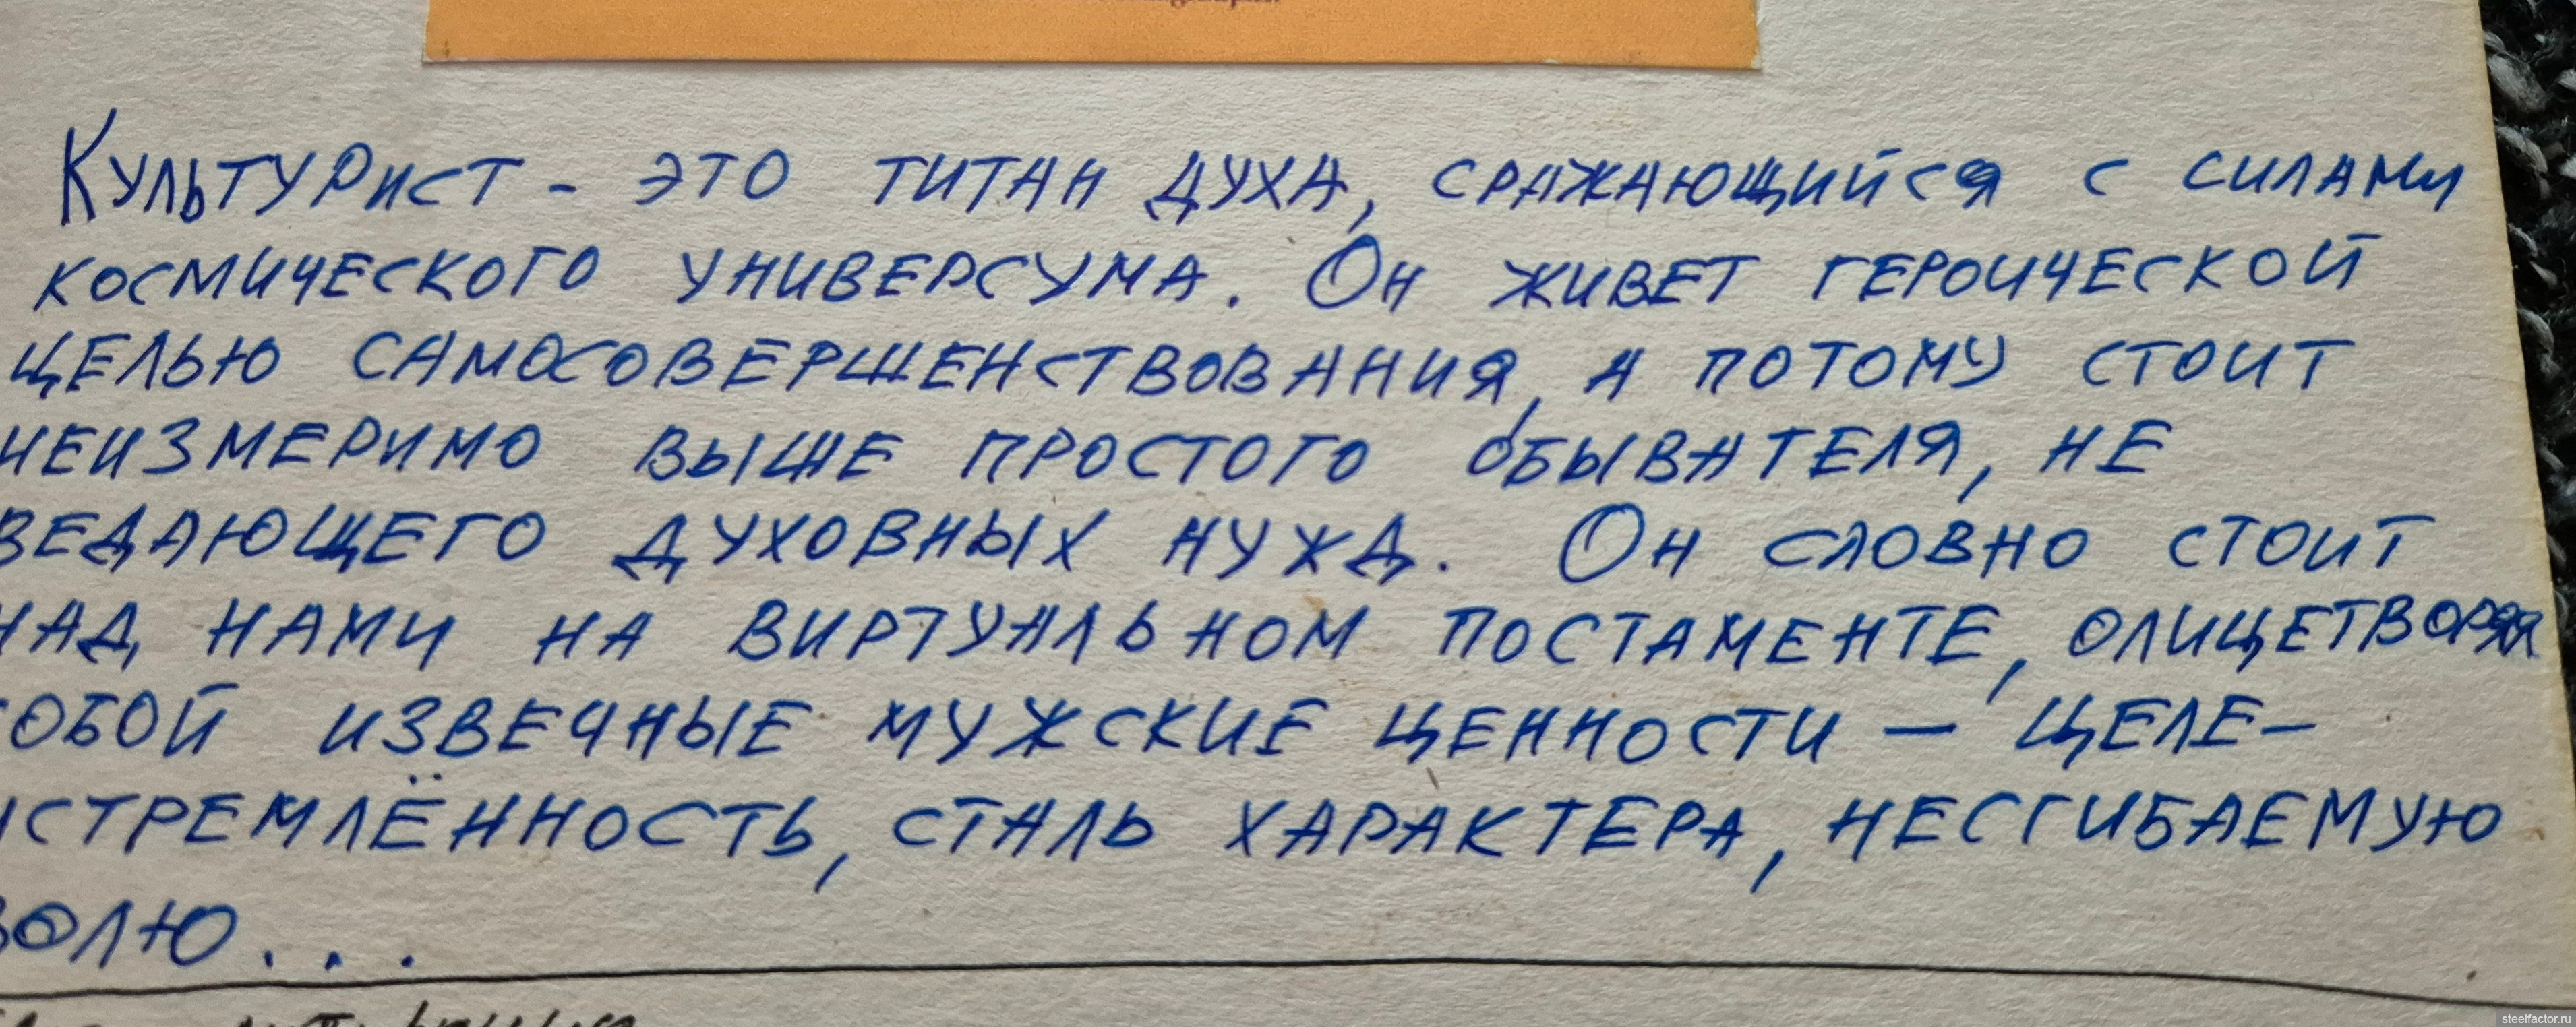 Культурист - это титан духа, сражающийся с силами
космического универсума. Он живет героической
целью самосовершенствования, а потому стоит
неизмеримо выше простого обывателя, не
ведающего духовных нужд. Он словно стоит
над нами на виртуальном постаменте, олицетворяя
собой извечные мужские ценности — целе-
устремлённость, сталь характера, несгибаемую
волю...
steelfactor.ru